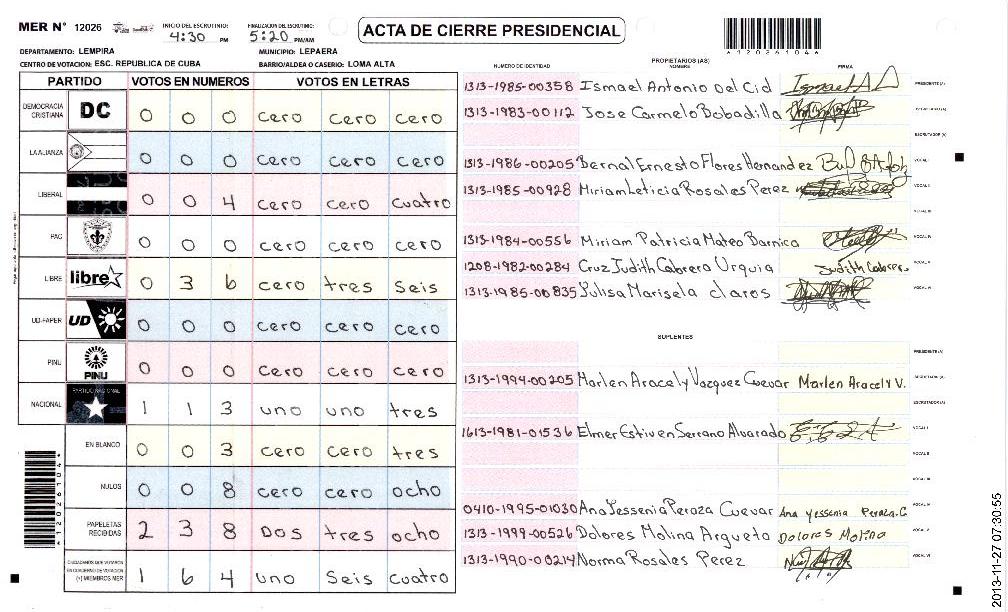 MER N° 12026 INICIO DEL ESCRUTINIO: 4:30 PM FINALIZACION DEL ESCRUTINIO: 5:20 PM/AM
ACTA DE CIERRE PRESIDENCIAL
DEPARTAMENTO: LEMPIRA MUNICIPIO: LEPAERA
CENTRO DE VOTACION: ESC. REPUBLICA DE CUBA BARRIO/ALDEA O CASERIO: LOMA ALTA
PARTIDO VOTOS EN NUMEROS VOTOS EN LETRAS
DEMOCRACIA CRISTIANA DC 0 0 0 cero cero cero
LA ALIANZA 0 0 0 cero cero cero
LIBERAL 0 0 4 cero cero cuatro
PAC 0 0 0 cero cero cero
LIBRE libre 0 3 6 cero tres seis
UD-FAPER UD 0 0 0 cero cero cero
PINU PINU 0 0 0 cero cero cero
NACIONAL PARTIDO NACIONAL 1 1 3 uno uno tres
EN BLANCO 0 0 3 cero cero tres
NULOS 0 0 8 cero cero ocho
PAPELETAS RECIBIDAS 2 3 8 Dos tres ocho
CIUDADANOS QUE VOTARON EN CUADERNO DE VOTACION (+) MIEMBROS MER 1 6 4 uno Seis cuatro
PROPIETARIOS (AS)
NUMERO DE IDENTIDAD NOMBRE FIRMA
1313-1985-00358 Ismael Antonio Del Cid Ismael A D PRESIDENTE (A)
1313-1983-00112 Jose Carmelo Bobadilla SECRETARIO (A)
ESCRUTADOR (A)
1313-1986-00205 Bernal Ernesto Flores Hernandez VOCAL I
1313-1985-00928 Miriam Leticia Rosales Perez VOCAL II
VOCAL III
1313-1984-00556 Miriam Patricia Mateo Barnica VOCAL IV
1208-1982-00284 Cruz Judith Cabrera Urquia Judith Cabrera VOCAL V
1313-1985-00835 Yulisa Marisela claros VOCAL VI
SUPLENTES
PRESIDENTE (A)
1313-1994-00205 Marlen Aracely Vazquez Cuevar Marlen Aracely V. SECRETARIO (A)
ESCRUTADOR (A)
1613-1981-01536 Elmer Estiven Serrano Alvarado VOCAL I
VOCAL II
VOCAL III
0410-1995-01030 Ana Yessenia Peraza Cuevar Ana yessenia Peraza.C VOCAL IV
1313-1999-00526 Dolores Molina Argueta Dolores Molina VOCAL V
1313-1990-00214 Norma Rosales Perez VOCAL VI
*12026104*
2013-11-27 07:30:55